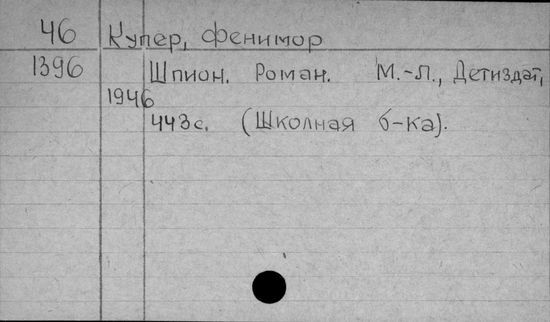 46 Купер, Фенимор
1396 Шпион. Роман. М.-Л., Детиздат,
1946
443с. (Школная б-ка).